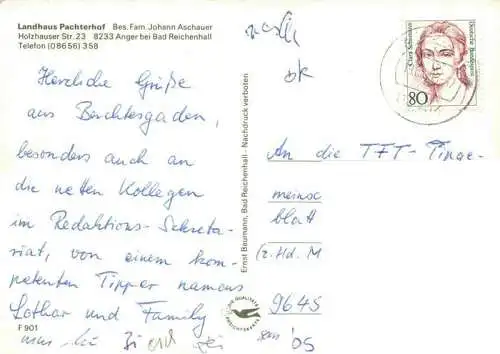 Landhaus Pachterhof Bes. Fam. Johann Aschauer
Holzhauser Str. 23 8233 Anger bei Bad Reichenhall
Telefon (08656) 358
Herzliche Grüße
aus Berchtesgaden,
besonders auch an
die netten Kollegen
im Redaktions-Sekreta-
riat, von einem kom-
petenten Tipper namens
Lothar und Family
F 901
Ernst Baumann, Bad Reichenhall - Nachdruck verboten
ok
Clara Schumann
Deutsche Bundespost
80
An die TFT-Tippge-
meinsc
blatt
(z.Hd. M
9645